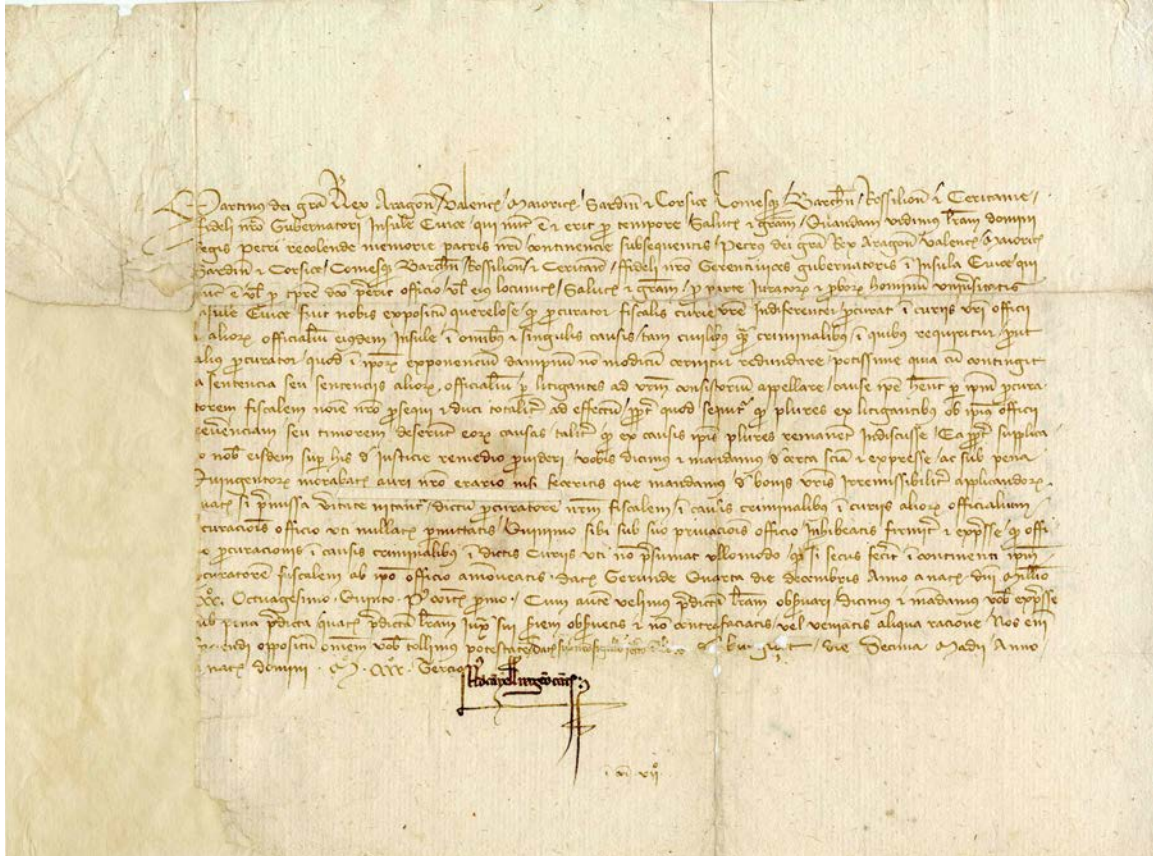 Martinus dei grã Rex Aragon̄ Valencie Maioricẽ Sardin̄ & Corsice Comesq̢ Barchn̄ Rossilion̄ & Ceritanie
fideli nr̃o Gubernatori Insule Euice qui nũc ẽ & erit ꝓ tempore Salutẽ & grãm / Quandam vidimus lr̃am domini
Regis Petri recolende memorie patris nr̃i continencie subsequentis / Petrus dei grã Rex Aragon̄ Valencẽ Maioricẽ
Sardin̄ & Corsice Comesq̢ Barchn̄ Rossilion̄ & Ceritan̄ / ffideli nr̃o Gerentiuices gubernatoris ĩ Insula Euice qui
nũc ẽ vl̃ ꝓ tp̃re dc̃o p̃erit officio vl̃ eius locumtẽ / Salutẽ & grãm / ꝓ parte Juratoꝝ & ꝓboꝝ hominũ vniũsitatis
Insule Euice fuit nobis expositũ querelose / qꝫ ꝓcurator fiscalis curie vr̃e Indiferenter ꝓcurat ĩ curijs vr̃i officij
& alioꝝ officialiũ eiusdem Insule ĩ omĩbꝰ & singulis causis / tam ciuilibꝰ qꝫ criminalibꝰ / ĩ quibꝰ requiritur / ꝓut
alius ꝓcurator / quod ĩ ip̃oꝝ exponenciũ dampnũ nõ modicũ cernitur redundare / potissime quia cũ contingit
a sentencia seu sentencijs alioꝝ officialiũ ꝑ litigantes ad vr̃m consistoriũ appellare / cause ip̃e hñt ꝑ ip̃m ꝓcura
torem fiscalem noĩe nr̃o ꝓsequi & duci totalit̃ ad effectũ / ꝓpt̃ quod sequit̃ qꝫ plures ex litigantibꝰ ob ip̃ius officij
reuerenciam seu timorem deserunt eoꝝ causas / talit̃ qꝫ ex causis ip̃is plures remanẽt Indiscusse / Ea ꝓpt̃ supplica
to nob̃ eisdem suꝑ his d̃ Justicie remedio ꝓuideri / vobis dicimus & mandamꝰ d̃ certa sciã & expresse / ac sub pena
Quingentoꝝ morabatẽ auri nr̃o erario nisi feceritis que mandamus d̃ bonis vr̃is Irremissibilit̃ applicandoꝝ
quatẽ si p̃missa v̓itate nitant̃ / dictũ ꝓcuratorem nr̃m fiscalem ĩ causis criminalibꝰ ĩ curijs alioꝝ officialium
ꝓcuracionis officio vti nullatẽ ꝑmittatis / Quinimo sibi sub sue priuacionis officio Inhibeatis firmit̃ & exp̃sse qꝫ offi
o ꝓcuracionis ĩ causis criminalibꝰ ĩ dictis Curijs vti nõ p̃sumat vllomodo / qꝫ si secus fec̃it ĩ continenti ip̃m
ꝓcuratorẽ fiscalem ab ip̃o officio amoueatis. Datẽ Gerunde Quarta die decembris Anno a natẽ dñi Millio
CCCº. Octuagesimo Quinto. Cum autẽ velimus p̃dictã lr̃am obẽruari / dicimus & mãdamus vob̃ exp̃sse
sub pena p̃dicta quatẽ p̃dictã lr̃am Iuxᵃ sui seriem obẽruetis & nõ contrafaciatis / vel veniatis aliqua racione / Nos eni
opposituũ omẽm vob̃ tollimus potestatẽ / Datẽ die Decima Madij Anno
a natẽ domini Mº. CCCC. Tercio